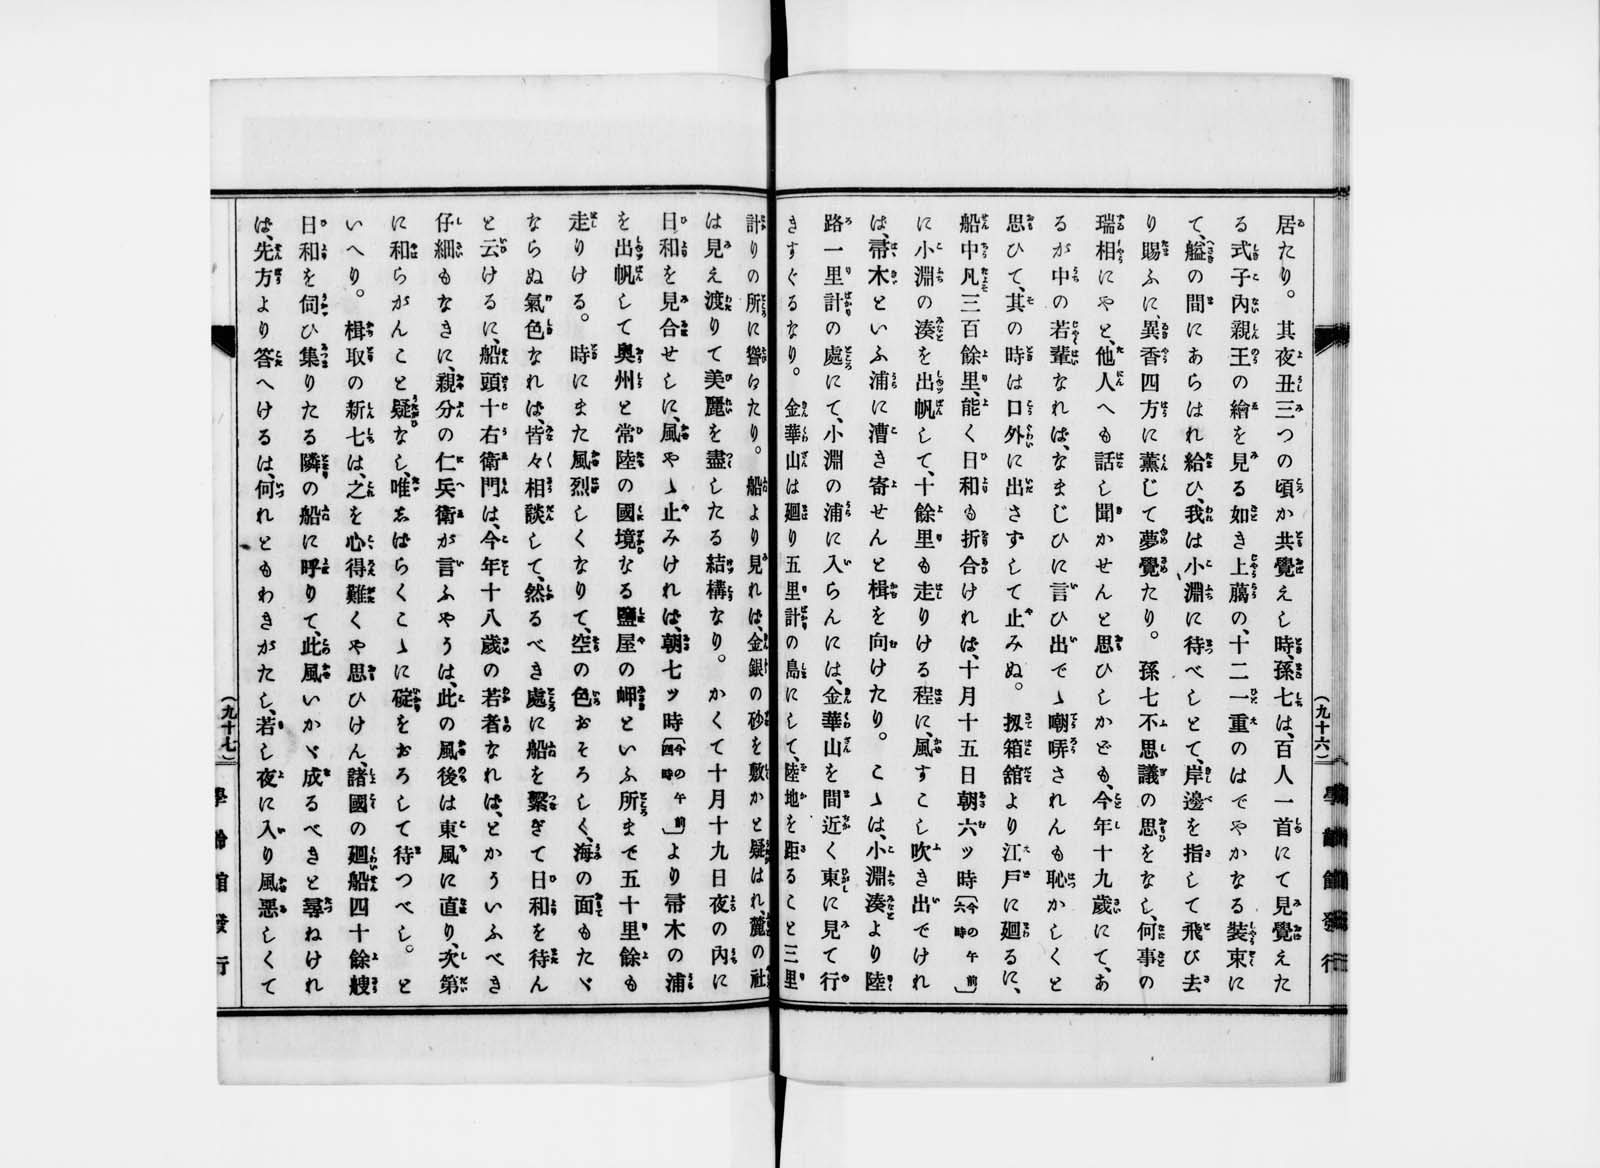 居たり。其夜丑三つの頃か共覺えし時、孫七は、百人一首にて見覺えた
る式子內親王の繪を見る如き上﨟の、十二一重のはでやかなる裝束に
て、艗の間にあらはれ給ひ、我は小淵に待べしとて、岸邊を指して飛び去
り賜ふに、異香四方に薫じて夢覺たり。孫七不思議の思をなし、何事の
瑞相にやと、他人へも話し聞かせんと思ひしかども、今年十九歲にて、あ
るが中の若輩なれば、なまじひに言ひ出でゝ嘲哢されんも恥かしくと
思ひて、其の時は口外に出さずして止みぬ。扨箱舘より江戶に廻るに、
船中凡三百餘里、能く日和も折合ければ、十月十五日朝六ッ時〔今の午前六時〕
に小淵の湊を出帆して、十餘里も走りける程に、風すこし吹き出でけれ
ば、帚木といふ浦に漕き寄せんと楫を向けたり。こゝは、小淵湊より陸
路一里計の處にて、小淵の浦に入らんには、金華山を間近く東に見て行
きすぐるなり。金華山は廻り五里計の島にして、陸地を距ること三里
(九十六)
學齡館發行
計りの所に聳ゐたり。船より見れば、金銀の砂を敷かと疑はれ、麓の社
は見え渡りて美麗を盡したる結構なり。かくて十月十九日夜の內に
日和を見合せしに、風やゝ止みければ、朝七ッ時〔今の午前四時〕より帚木の浦
を出帆して奧州と常陸の國境なる鹽屋の岬といふ所まで五十里餘も
走りける。時にまた風烈しくなりて、空の色おそろしく、海の面もたゞ
ならぬ氣色なれば、皆々相談して、然るべき處に船を繫ぎて日和を待ん
と云けるに、船頭十右衞門は、今年十八歲の若者なれば、とかういふべき
仔細もなきに、親分の仁兵衞が言ふやうは、此の風後は東風に直り、次第
に和らがんこと疑なし、唯志ばらくこゝに碇をおろして待つべし。と
いへり。楫取の新七は、之を心得難くや思ひけん、諸國の廻船四十餘艘
日和を伺ひ集りたる隣の船に呼りて、此風いかゞ成るべきと尋ねけれ
ば、先方より答へけるは、何れともわきがたし、若し夜に入り風悪しくて
(九十七)
學齡館發行